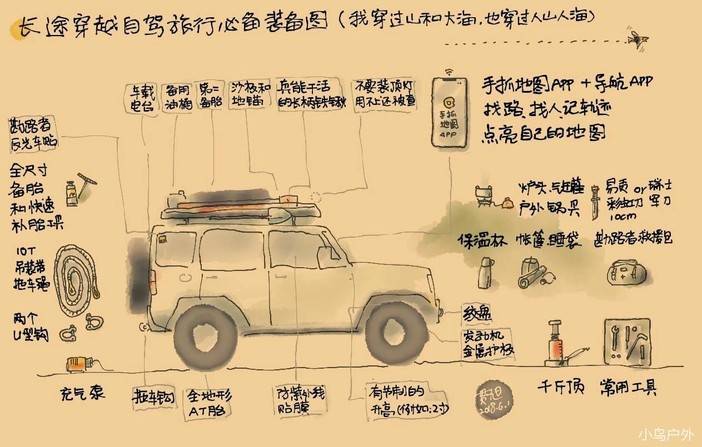 长途穿越自驾旅行必备装备图(我穿过山和大海,也穿过人山人海)
车载
电台
备用
油桶
第二
备胎
沙板和
地锚
真能干活
的长柄铁锹
不要装顶灯
用不上还被查
手抓
地图
APP
手抓地图APP+导航APP
找路、找人记轨迹
点亮自己的地图
勘路者
反光车贴
全尺寸
备胎
和快速
补胎工具
10T
吊装带
拖车绳
两个
U型钩
充气泵
炉头、气罐
户外锅具
易贡or瑞士
军刀
10cm
保温杯
帐篷睡袋
勘路者救援包
绞盘
发动机
金属护板
拖车钩
全地形
AT胎
防紫外线
贴膜
有节制的
升高(例如:2寸)
2018.6.1
千斤顶
常用工具
小鸟户外